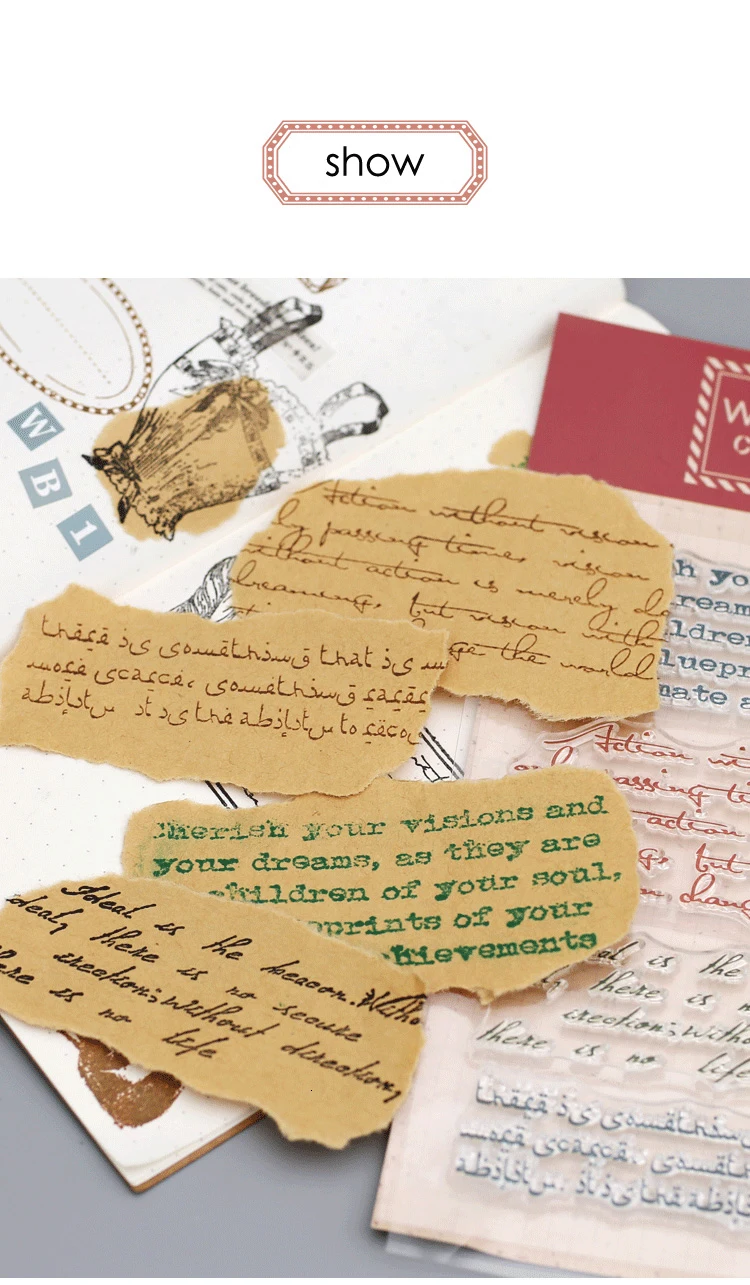 show
W
B
1
Action without vision
ly passing time, vision
without action is merely
dreaming, but vision with
the world
there is something that is
more scarce, something rarer
ability it is the ability to
Cherish your visions and
your dreams, as they are
children of your soul,
your
Ideal is the beacon. Witho
there is no secure
irection; without direction,
here is no life
h yo
ream
ldren
luepr
mate a
Action wi
passing ti
action
but
chang
is the
there is n
irection; witho
there is no life
there is something
more scarce, someth
ability. it is the abili